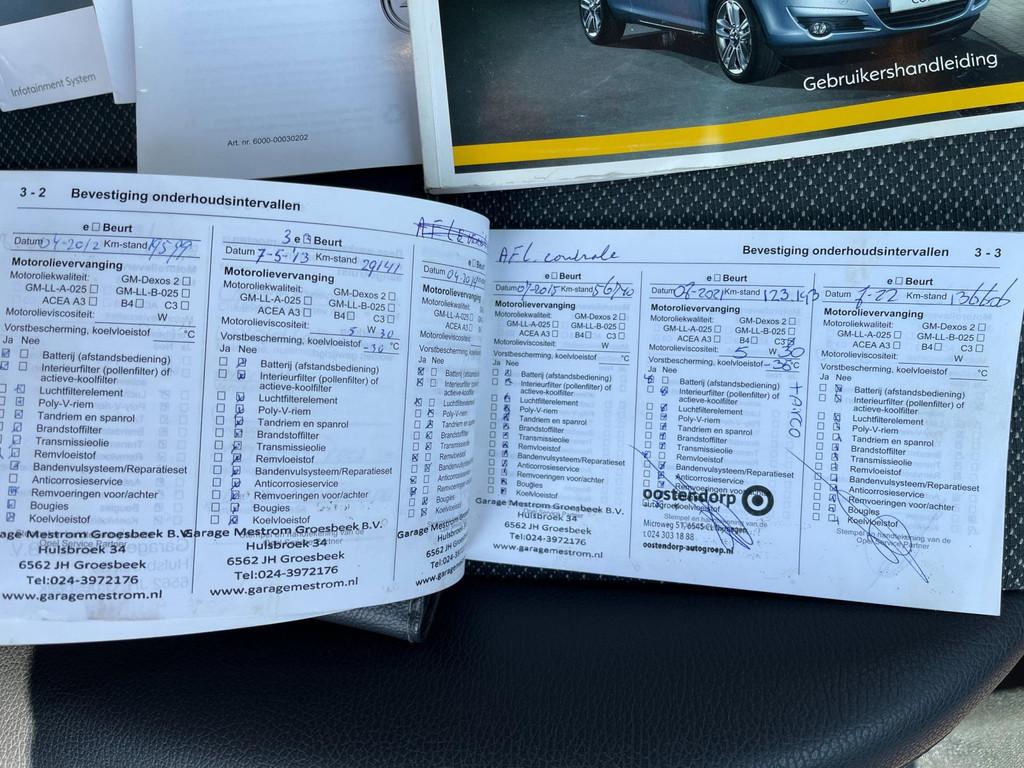 Infotainment System
Art. nr. 6000-00030202
Gebruikershandleiding
3 - 2 Bevestiging onderhoudsintervallen
e □ Beurt
Datum 04-2012 Km-stand
Motorolievervanging
Motoroliekwaliteit: GM-Dexos 2 □
GM-LL-A-025 □ GM-LL-B-025 □
ACEA A3 □ B4 □ C3 □
Motorolieviscositeit: W
Vorstbescherming, koelvloeistof °C
Ja Nee
Batterij (afstandsbediening)
Interieurfilter (pollenfilter) of
actieve-koolfilter
Luchtfilterelement
Poly-V-riem
Tandriem en spanrol
Brandstoffilter
Transmissieolie
Remvloeistof
Bandenvulsysteem/Reparatieset
Anticorrosieservice
Remvoeringen voor/achter
Bougies
Koelvloeistof
Garage Mestrom Groesbeek B.V.
Opel Service Partner
Hulsbroek 34
6562 JH Groesbeek
Tel:024-3972176
www.garagemestrom.nl
3 e □ Beurt
Datum 7-5-'13 Km-stand 29141
Motorolievervanging
Motoroliekwaliteit: GM-Dexos 2 □
GM-LL-A-025 □ GM-LL-B-025 □
ACEA A3 □ B4 □ C3 □
Motorolieviscositeit: 5 W 30
Vorstbescherming, koelvloeistof -30 °C
Ja Nee
Batterij (afstandsbediening)
Interieurfilter (pollenfilter) of
actieve-koolfilter
Luchtfilterelement
Poly-V-riem
Tandriem en spanrol
Brandstoffilter
Transmissieolie
Remvloeistof
Bandenvulsysteem/Reparatieset
Anticorrosieservice
Remvoeringen voor/achter
Bougies
Koelvloeistof
Garage Mestrom Groesbeek B.V.
Hulsbroek 34
6562 JH Groesbeek
Tel:024-3972176
www.garagemestrom.nl
Datum
Motorolievervanging
Motoroliekwaliteit:
GM-LL-A-025
ACEA A3
Motorolieviscositeit:
Vorstbescherming
Ja Nee
Batterij
Interieurfilter
actieve
Luchtfilter
Poly-V-riem
Garage Mestrom
Hulsbroek
6562 JH
Tel:024-
www.garage
AFL. controle
Bevestiging onderhoudsintervallen 3 - 3
e □ Beurt
Datum 07-2015 Km-stand 56740
Motorolievervanging
Motoroliekwaliteit: GM-Dexos 2 □
GM-LL-A-025 □ GM-LL-B-025 □
ACEA A3 □ B4 □ C3 □
Motorolieviscositeit: W
Vorstbescherming, koelvloeistof °C
Ja Nee
Batterij (afstandsbediening)
Interieurfilter (pollenfilter) of
actieve-koolfilter
Luchtfilterelement
Poly-V-riem
Tandriem en spanrol
Brandstoffilter
Transmissieolie
Remvloeistof
Bandenvulsysteem/Reparatieset
Anticorrosieservice
Remvoeringen voor/achter
Bougies
Koelvloeistof
Garage Mestrom Groesbeek B.V.
Hulsbroek 34
6562 JH Groesbeek
Tel:024-3972176
www.garagemestrom.nl
e □ Beurt
Datum 07-2021 Km-stand 123.143
Motorolievervanging
Motoroliekwaliteit: GM-Dexos 2 □
GM-LL-A-025 □ GM-LL-B-025 □
ACEA A3 □ B4 □ C3
Motorolieviscositeit: 5 W 30
Vorstbescherming, koelvloeistof -36 °C
Ja Nee
Batterij (afstandsbediening)
Interieurfilter (pollenfilter) of
actieve-koolfilter
Luchtfilterelement
Poly-V-riem
Tandriem en spanrol
Brandstoffilter
Transmissieolie
Remvloeistof
Bandenvulsysteem/Reparatieset
Anticorrosieservice
Remvoeringen voor
+ AIRCO
oostendorp
autogroep
Stempel en handtekening van de
Microweg 51, 6545 CL Nijmegen
t.024 303 18 88
oostendorp-autogroep.nl
e □ Beurt
Datum 7-22 Km-stand
Motorolievervanging
Motoroliekwaliteit: GM-Dexos 2 □
GM-LL-A-025 □ GM-LL-B-025 □
ACEA A3 □ B4 □ C3 □
Motorolieviscositeit: W
Vorstbescherming, koelvloeistof °C
Ja Nee
Batterij (afstandsbediening)
Interieurfilter (pollenfilter) of
actieve-koolfilter
Luchtfilterelement
Poly-V-riem
Tandriem en spanrol
Brandstoffilter
Transmissieolie
Remvloeistof
Bandenvulsysteem/Reparatieset
Anticorrosieservice
Remvoeringen voor/achter
Bougies
Koelvloeistof
Stempel en handtekening van de
Opel Service Partner